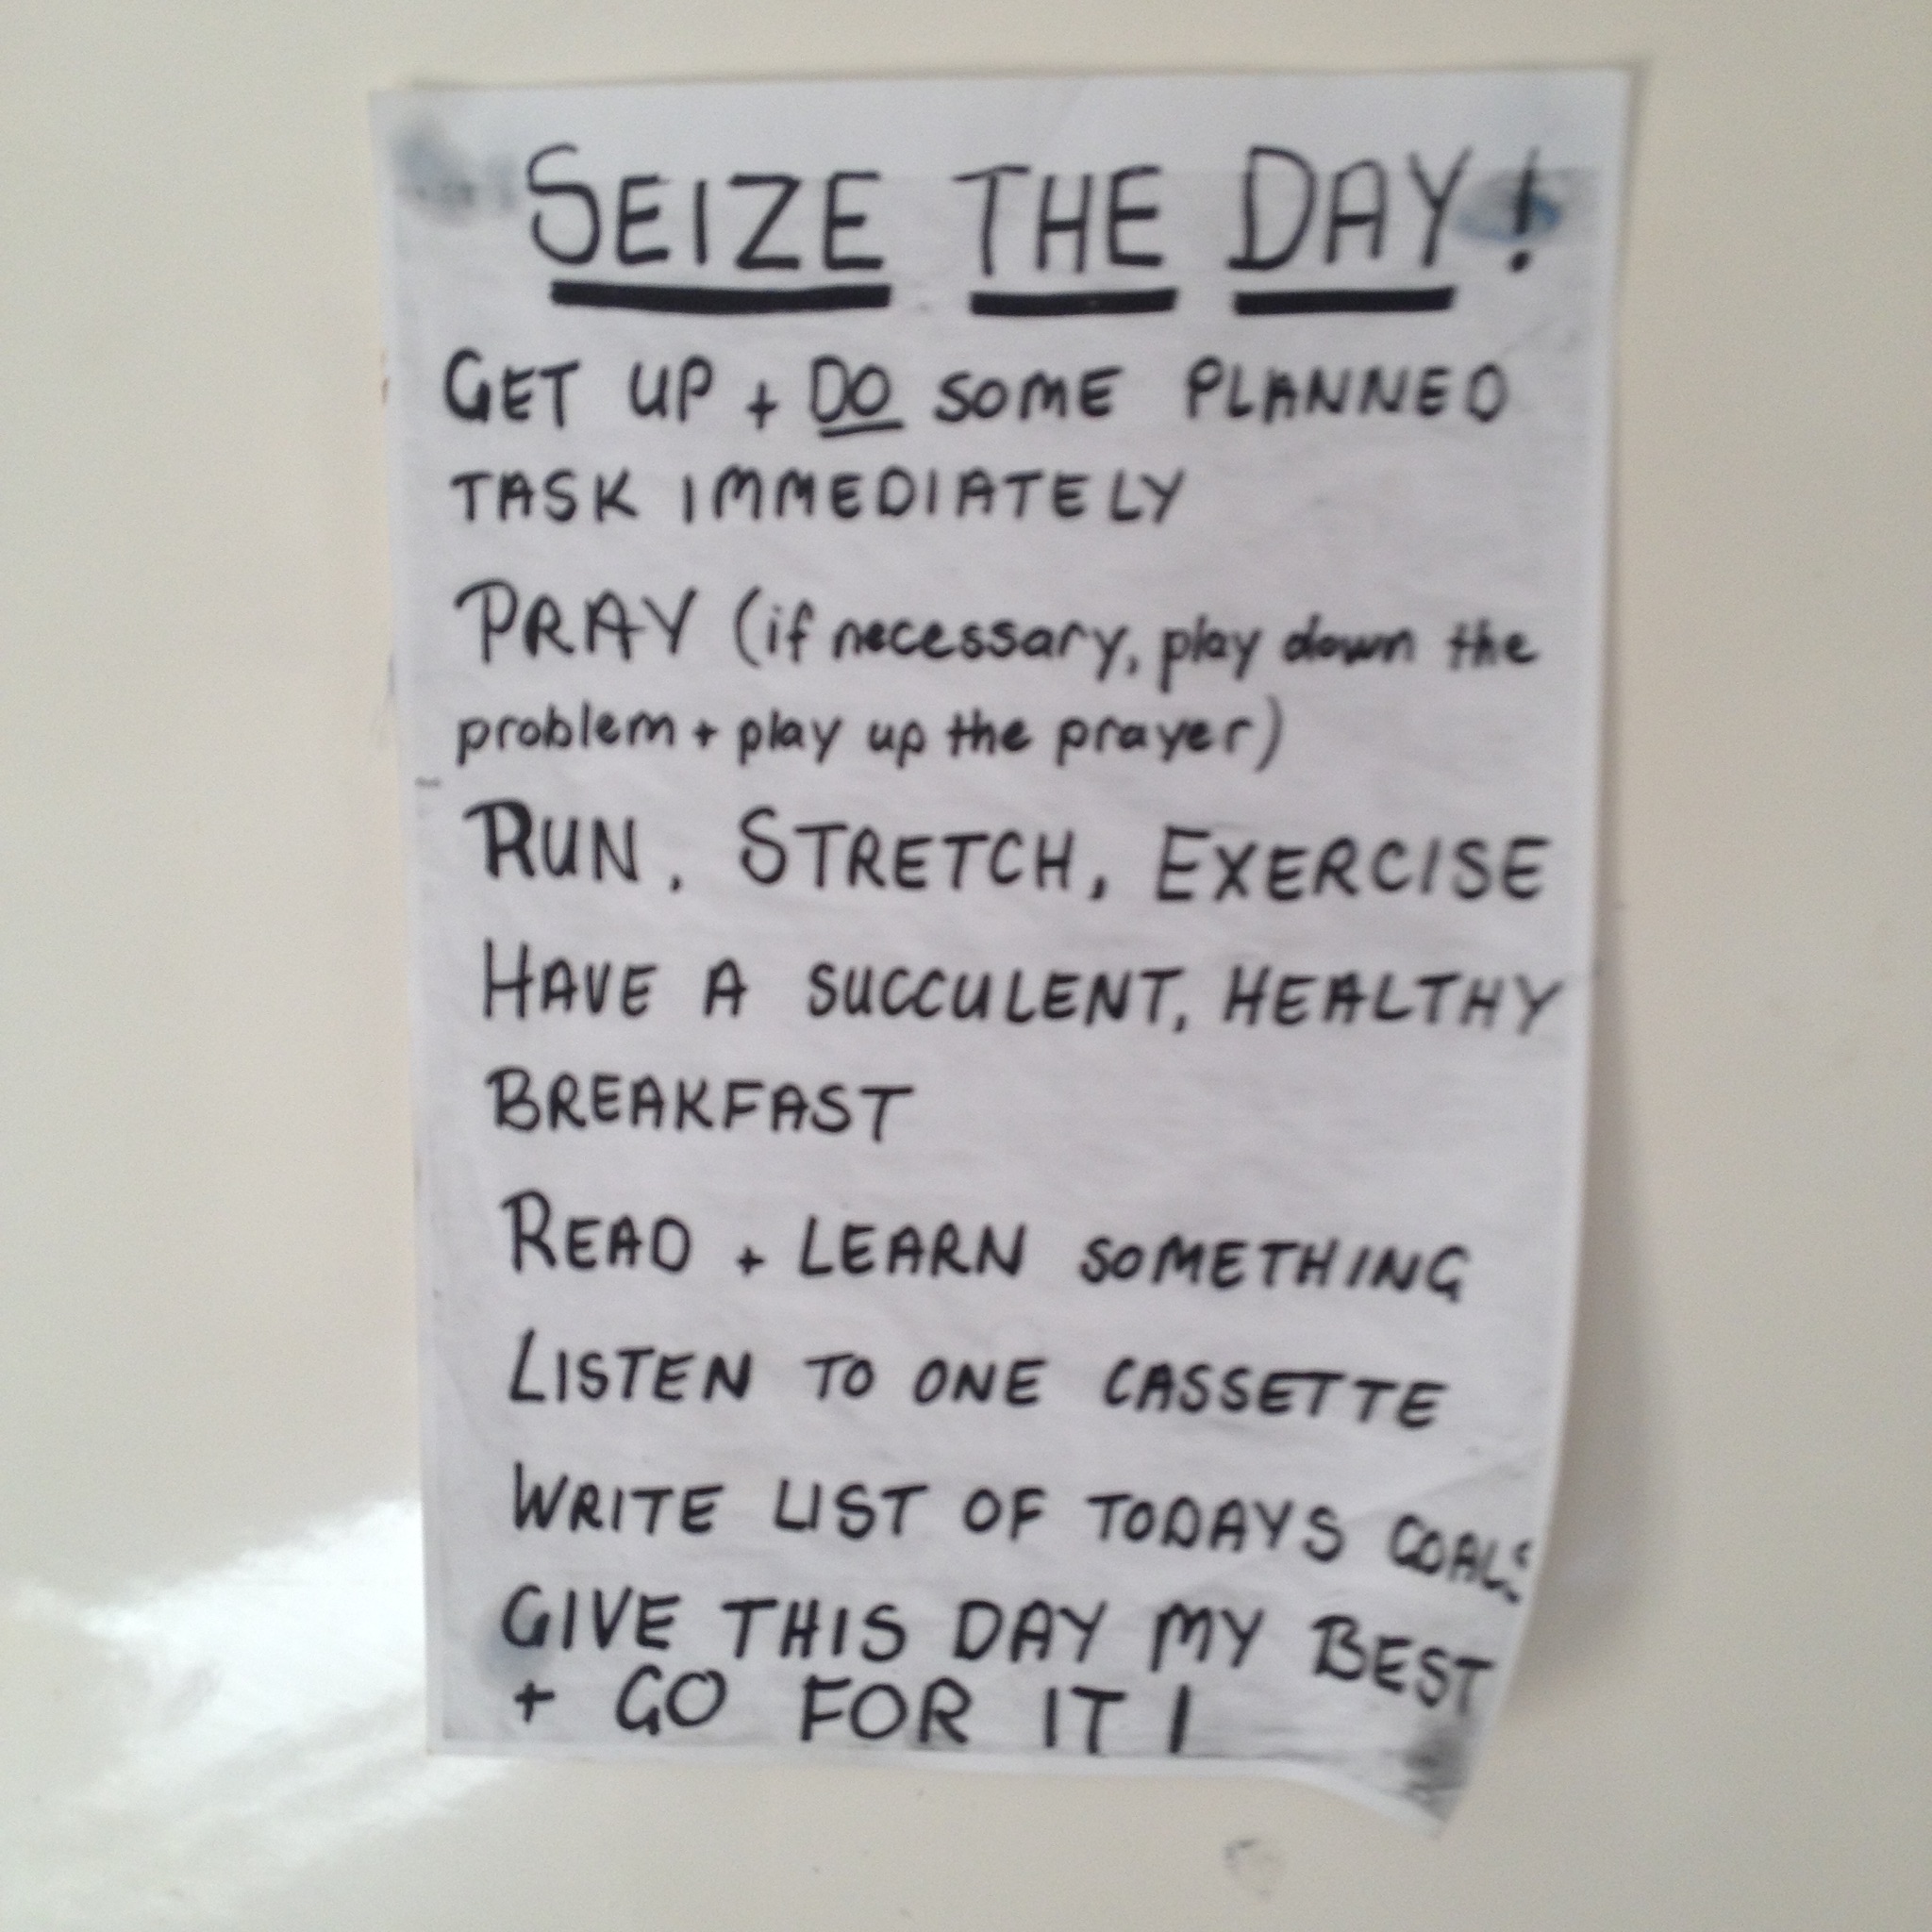 SEIZE THE DAY!
GET UP + DO SOME PLANNED
TASK IMMEDIATELY
PRAY (if necessary, play down the
problem + play up the prayer)
RUN, STRETCH, EXERCISE
HAVE A SUCCULENT, HEALTHY
BREAKFAST
READ + LEARN SOMETHING
LISTEN TO ONE CASSETTE
WRITE LIST OF TODAYS GOALS
GIVE THIS DAY MY BEST
+ GO FOR IT!